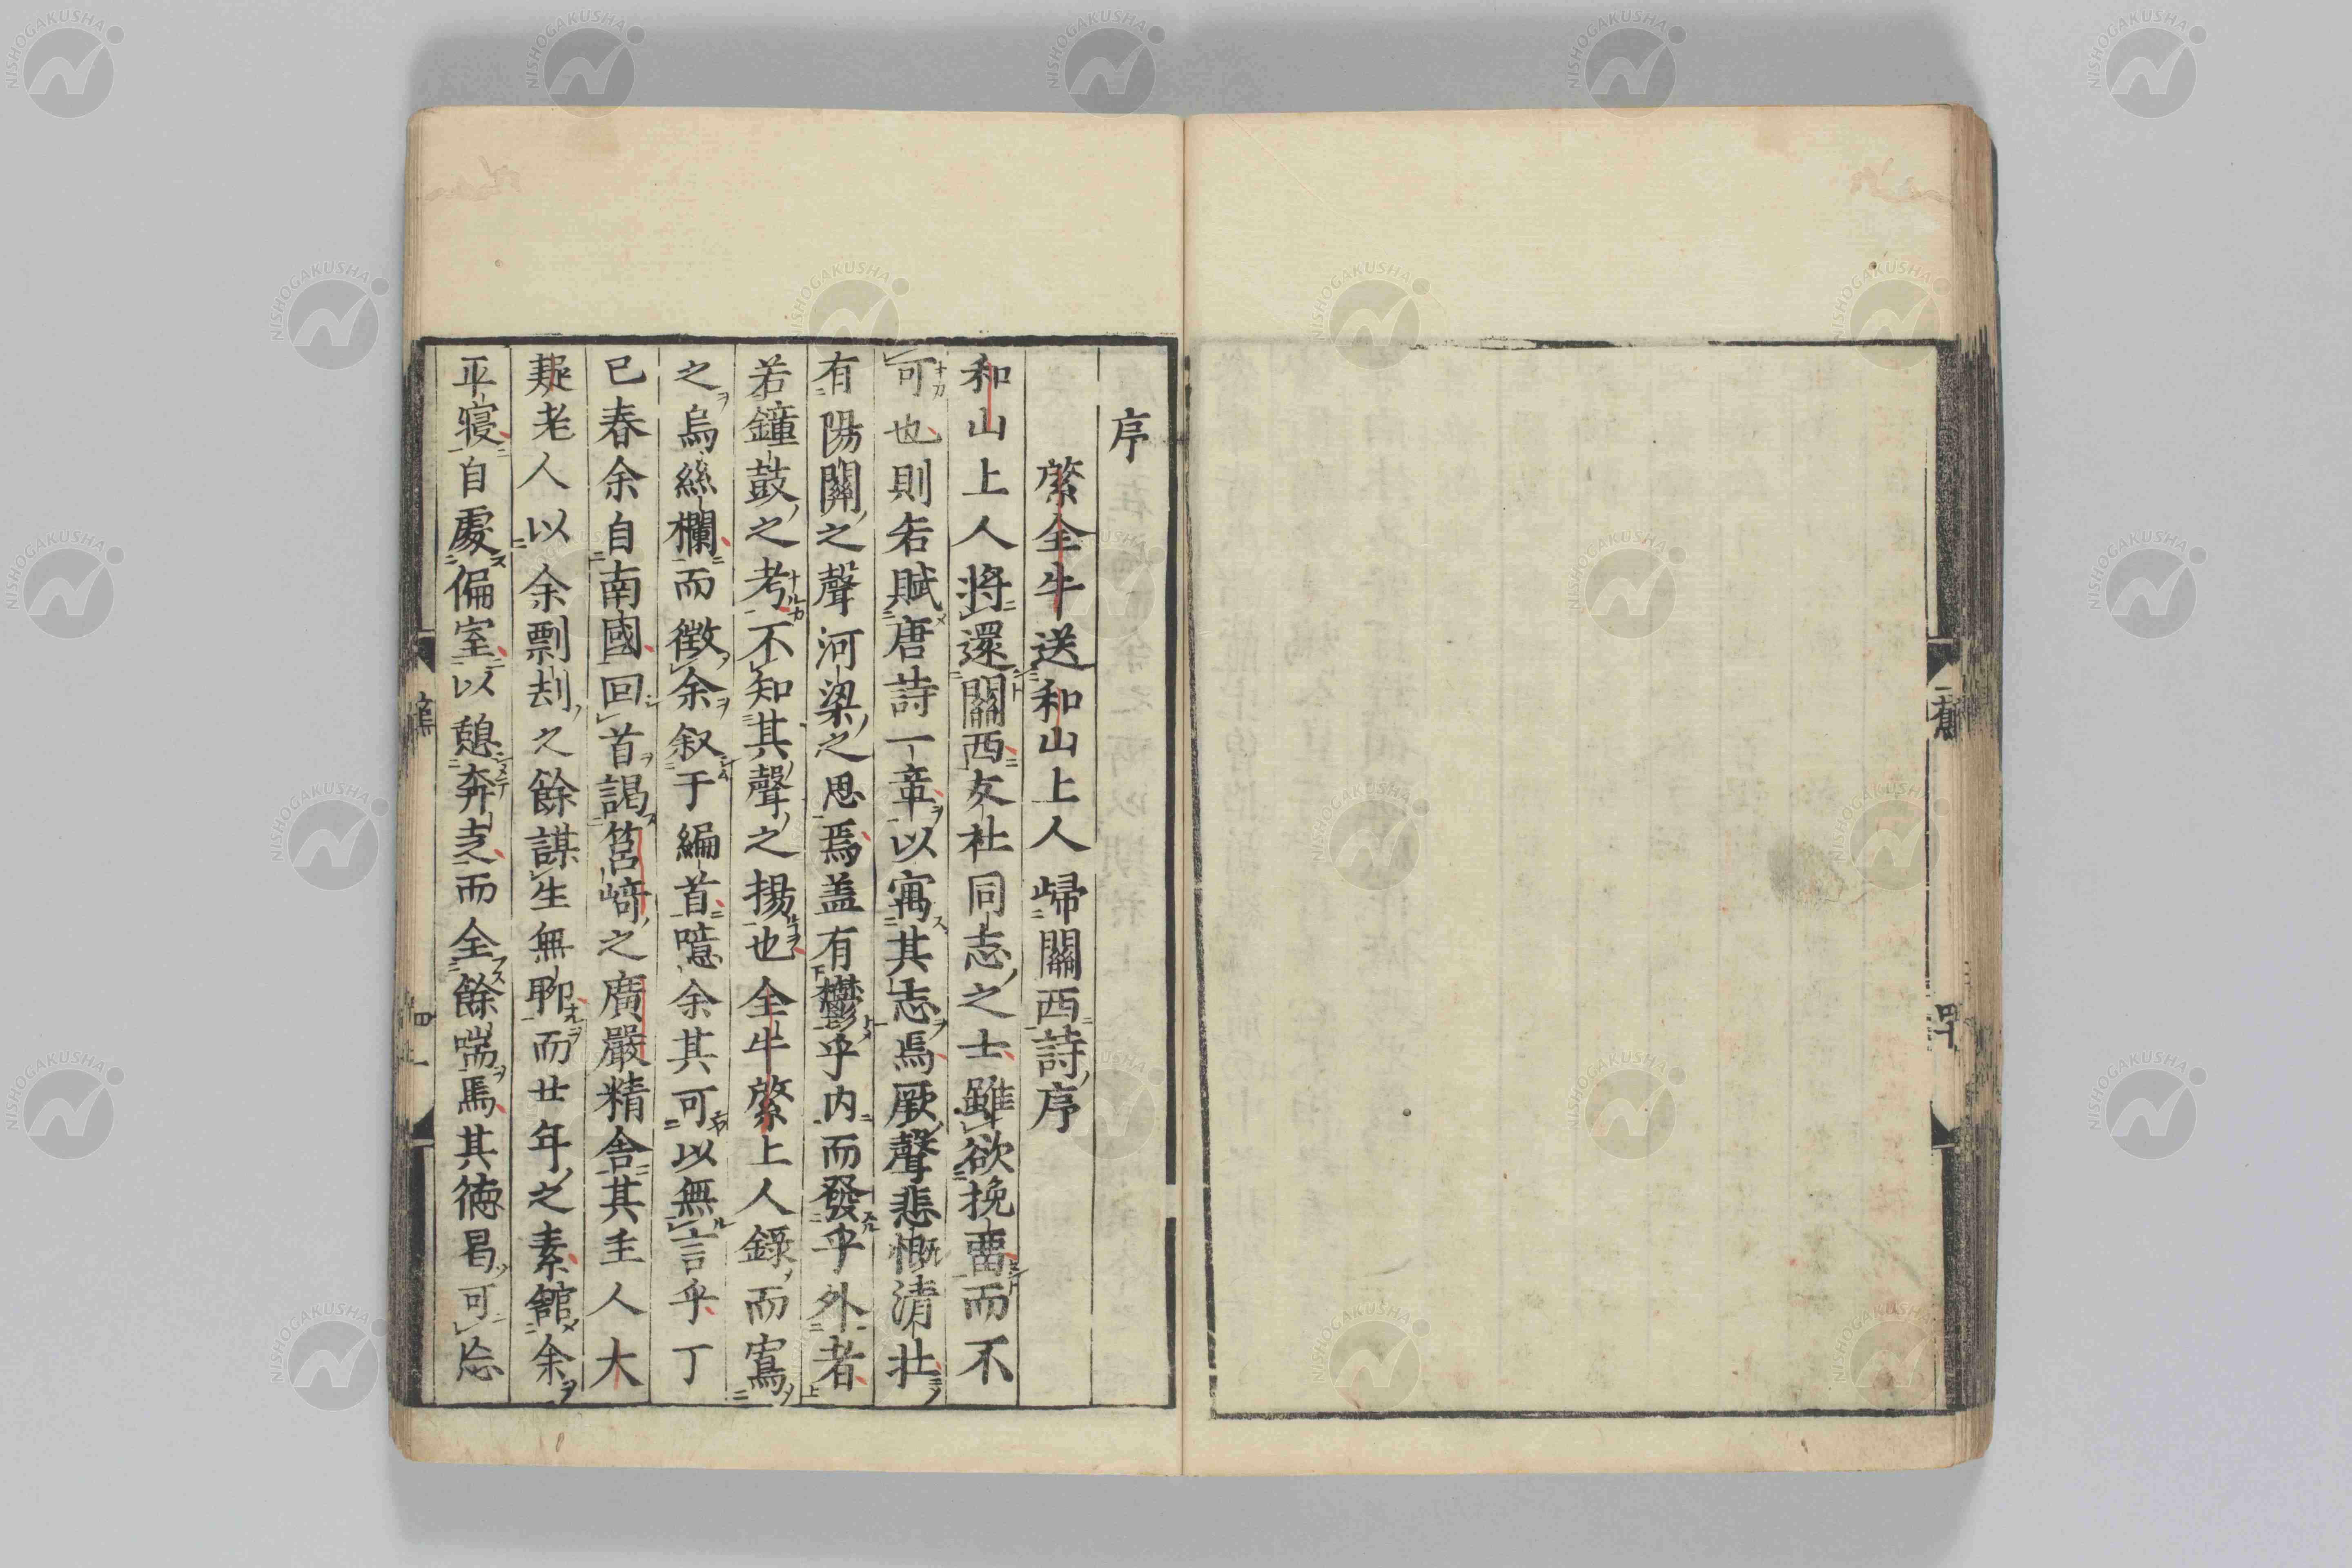 序
綮全牛送和山上人歸關西詩序
和山上人將還關西友社同志之士雖欲挽畱而不
可也則各賦唐詩一章以寓其志焉厥聲悲慨清壯
有陽關之聲河梁之思焉盖有欝乎内而發乎外者
若鐘鼓之考不知其聲之揚也全牛綮上人錄而寫
之烏絲欄而徵余叙于編首噫余其可以無言乎丁
已春余自南國回首謁筥﨑之廣嚴精舎其主人大
䟽老人以余剽刦之餘謀生無聊而廿年之素舘余
平寝自處偏室以憩奔走而全餘喘焉其德曷可忘
四十
四一
NISHOGAKUSHA